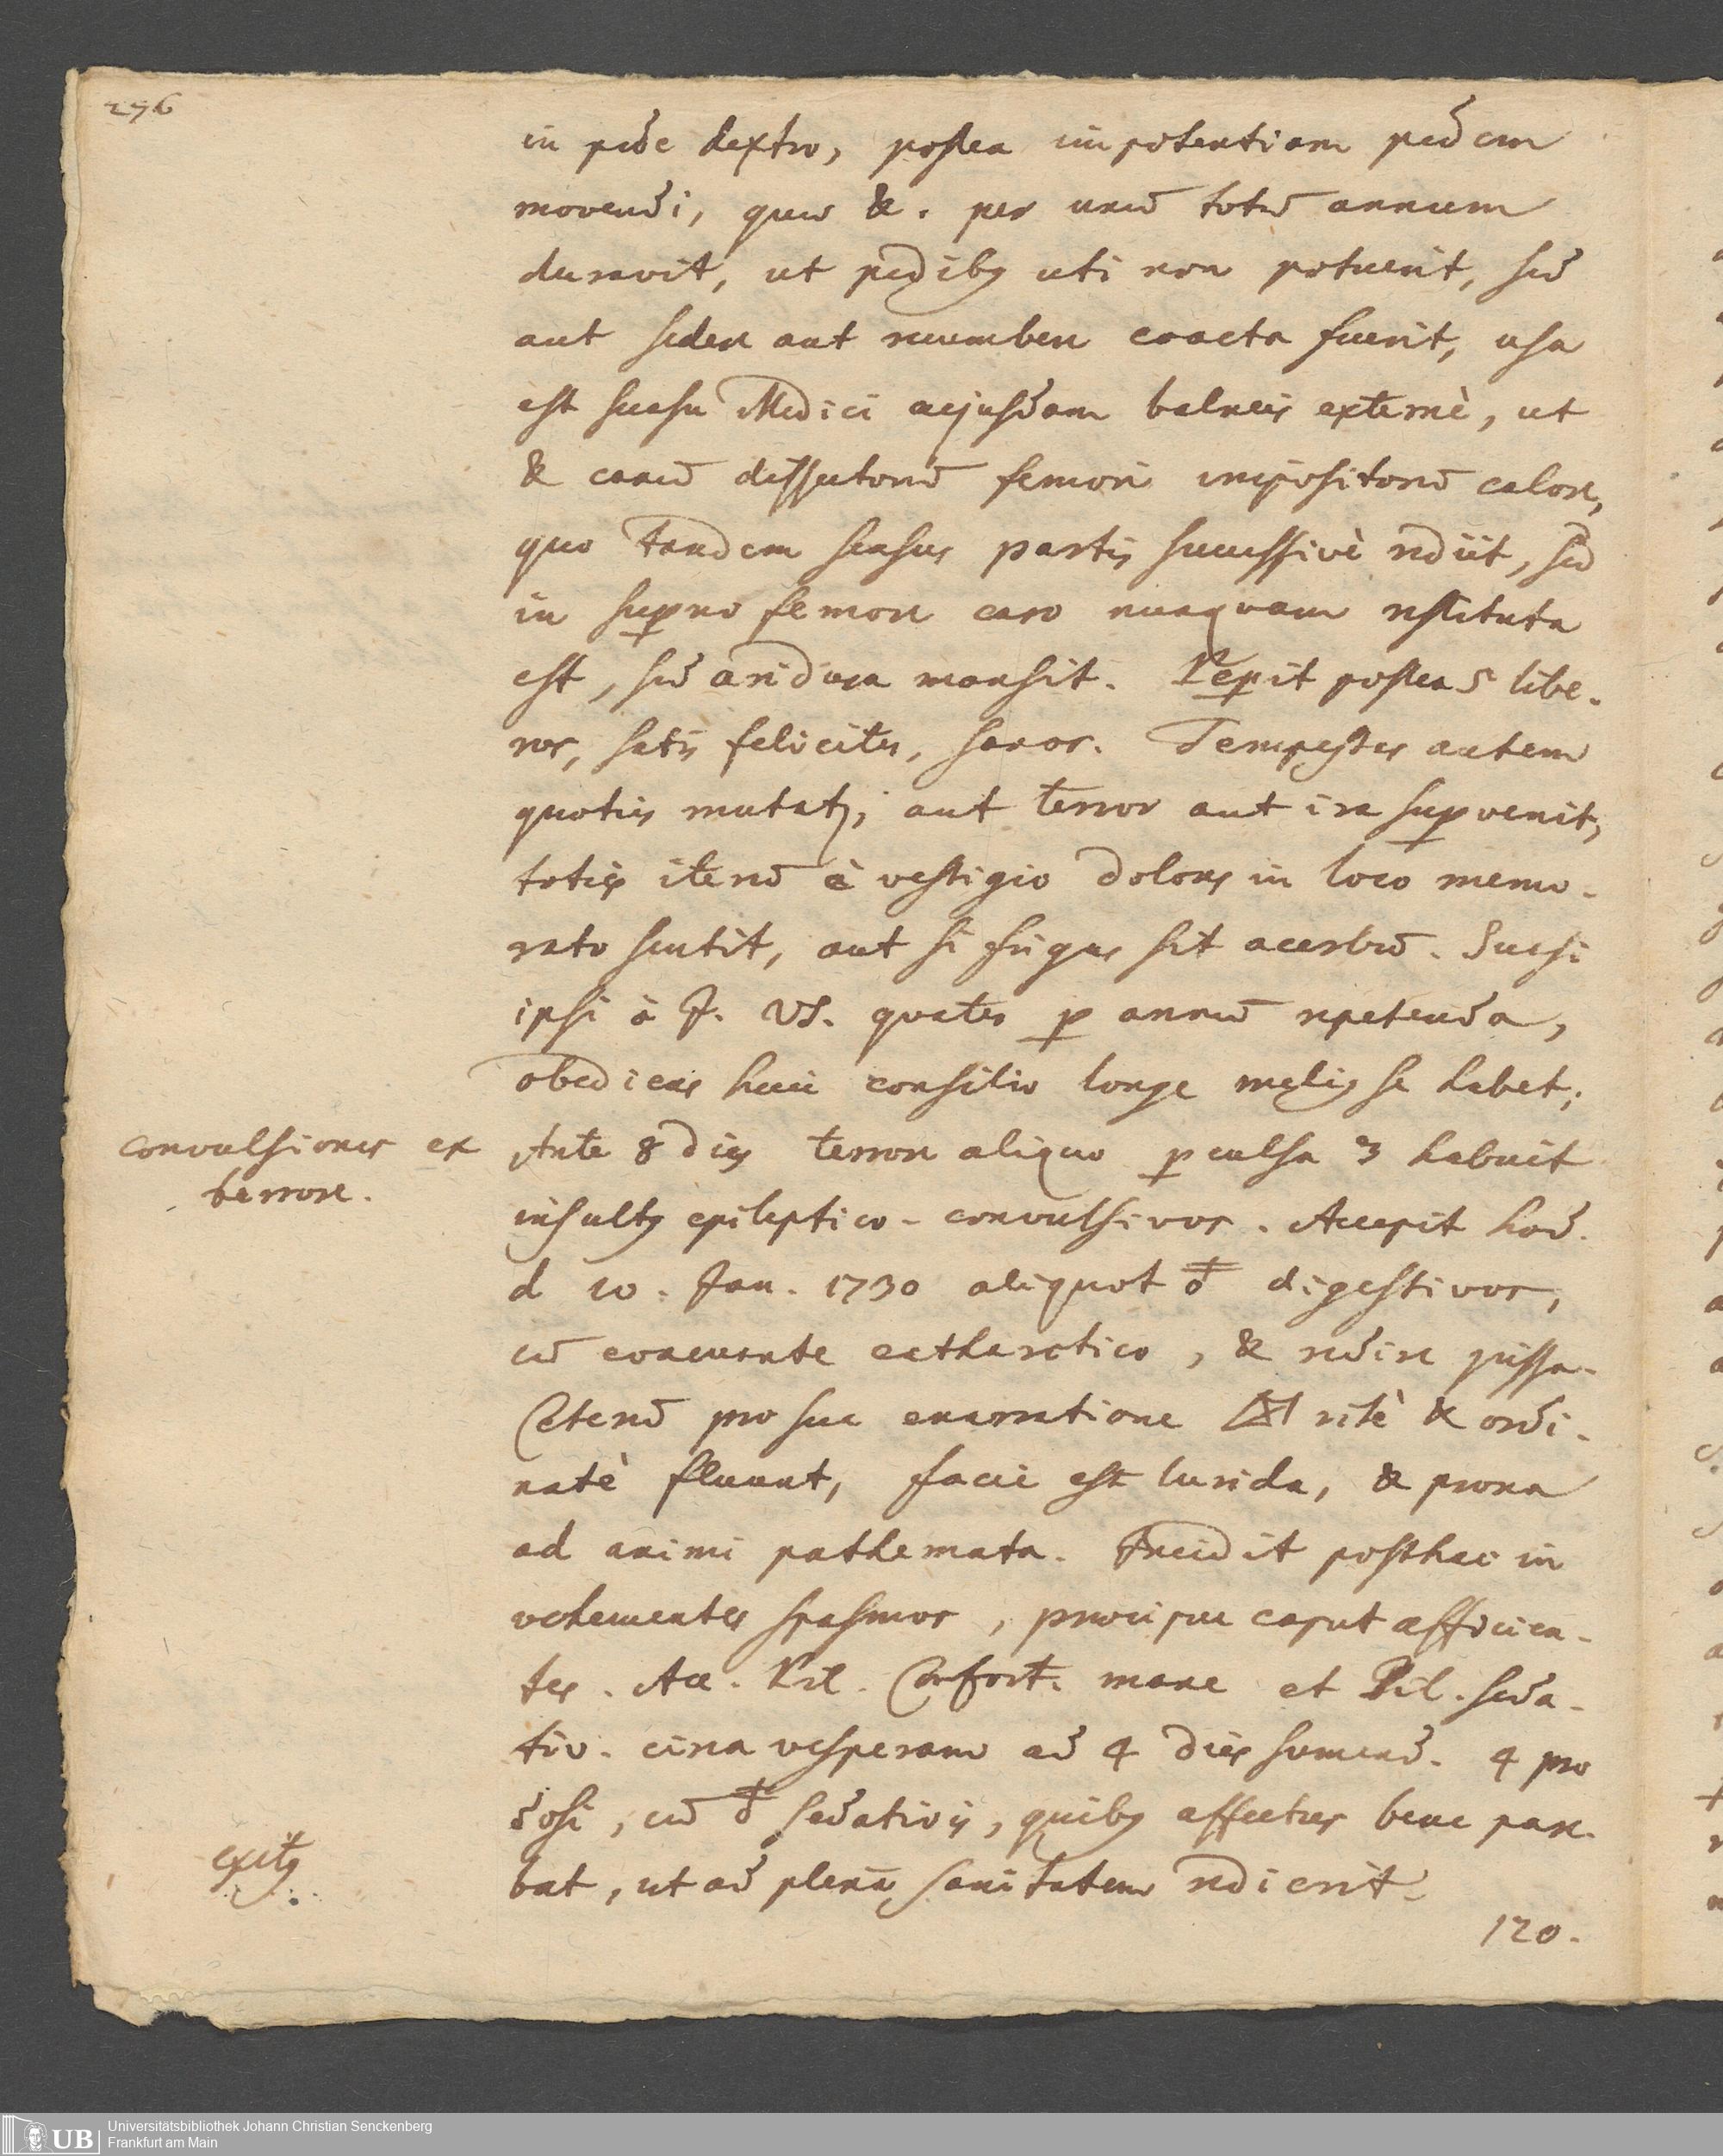 276
in pede dextro, postea impotentiam pedem
movendi, quae &. per unū totū annum
duravit, ut pedibus uti non potuerit, sed
aut sedere aut recumbere coacta fuerit, usa
est suasu Medici cujusdam balneis externè, ut
& canū dissectorū femori impositorū calore,
quo tandem sensus partis successivè rediit, sed
in superno femore caro nunquam restituta
est, sed aridura mansit. Peperit postea 5 libe-
ros, satis feliciter, sanos. Tempestas autem
quoties mutatur, aut terror aut ira supervenit,
toties iterū è vestigio dolores in loco memo-
rato sentit, aut si frigus sit acerbū. Suasi
ipsi à J. VS. quater per annū repetenda,
obediens huic consilio longe melius se habet;
convulsiones ex
terrore.
Ante 8 dies terrore aliquo perculsa 3 habuit
insultus epileptico-convulsivos. Accepit hod.
d 10. Jan. 1730 aliquot digestivos,
cū evacuante cathartico, & redire jussa.
Ceterū pro sua enarratione ritè & ordi-
natè fluunt, facie est lurida, & prona
ad animi pathemata. Incidit posthac in
vehementes spasmos, praecipue caput afficien-
tes. Acc. Pil. Confort. mane et Pil. seda-
tiv. circa vesperam ad 4 dies sumend. 4 pro
dosi, cū sedativis, quibus affectus bene pare-
exitus
bat, ut ad plenā sanitatem redierit.
120.
UB
Universitätsbibliothek Johann Christian Senckenberg
Frankfurt am Main